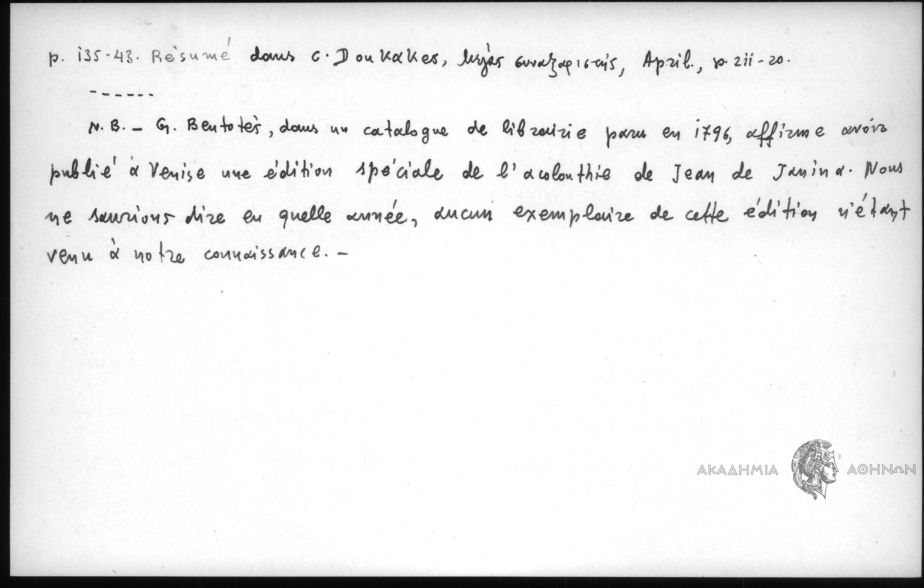 p. 135-43. Résumé dans C. Doukakes, Μέγας συναξαριστής, April., p. 211-20.
------
N.B. – G. Bentotès, dans un catalogue de librairie paru en 1796, affirme avoir
publié à Venise une édition spéciale de l'acolouthie de Jean de Janina. Nous
ne saurions dire en quelle année, aucun exemplaire de cette édition n'étant
venu à notre connaissance. –
ΑΚΑΔΗΜΙΑ ΑΘΗΝΩΝ